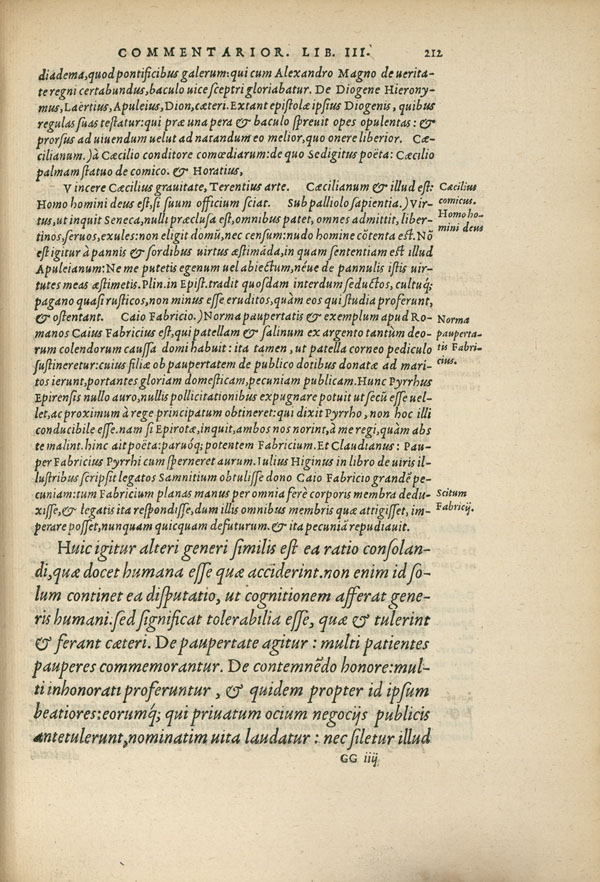 COMMENTARIOR. LIB. III. 212
diadema,quod pontificibus galerum:qui cum Alexandro Magno de uerita-
te regni certabundus,baculo uice sceptri gloriabatur. De Diogene Hierony-
mus,Laërtius,Apuleius,Dion,cæteri.Extant epistolæ ipsius Diogenis, quibus
regulas suas testatur:qui præ una pera & baculo spreuit opes opulentas: &
prorsus ad uiuendum uelut ad natandum eo melior,quo onere liberior. Cæ-
cilianum.)à Cæcilio conditore comœdiarum:de quo Sedigitus poëta: Cæcilio
palmam statuo de comico. & Horatius,
Vincere Cæcilius grauitate, Terentius arte. Cæcilianum & illud est:
Homo homini deus est,si suum officium sciat. Sub palliolo sapientia.) Vir-
tus,ut inquit Seneca,nulli præclusa est,omnibus patet, omnes admittit, liber-
tinos,seruos,exules:non eligit domũ,nec censum:nudo homine cõtenta est.Nõ
est igitur à pannis & sordibus uirtus æstimãda,in quam sententiam est illud
Apuleianum:Ne me putetis egenum uel abiectum,néue de pannulis istis uir-
tutes meas æstimetis.Plin.in Epist.tradit quosdam interdum seductos, cultuq;
pagano quasi rusticos,non minus esse eruditos,quàm eos qui studia proferunt,
& ostentant. Caio Fabricio.)Norma paupertatis & exemplum apud Ro-
manos Caius Fabricius est,qui patellam & salinum ex argento tantùm deo-
rum colendorum caussa domi habuit: ita tamen, ut patella corneo pediculo
sustineretur:cuius filiæ ob paupertatem de publico dotibus donatæ ad mari-
tos ierunt,portantes gloriam domesticam,pecuniam publicam.Hunc Pyrrhus
Epirensis nullo auro,nullis pollicitationibus expugnare potuit ut secũ esse uel-
let,ac proximum à rege principatum obtineret:qui dixit Pyrrho,non hoc illi
conducibile esse.nam si Epirotæ,inquit,ambos nos norint,à me regi,quàm abs
te malint.hinc ait poëta:paruóq; potentem Fabricium.Et Claudianus: Pau-
per Fabricius Pyrrhi cum sperneret aurum.Iulius Higinus in libro de uiris il-
lustribus scripsit legatos Samnitium obtulisse dono Caio Fabricio grandẽ pe-
cuniam:tum Fabricium planas manus per omnia ferè corporis membra dedu-
xisse,& legatis ita respondisse,dum illis omnibus membris quæ attigisset, im-
perare posset,nunquam quicquam defuturum.& ita pecuniã repudiauit.
Cæcilius
comicus.
Homo ho-
mini deus
Norma
pauperta-
tis Fabri-
cius.
Scitum
Fabricij.
Huic igitur alteri generi similis est ea ratio consolan-
di,quæ docet humana esse quæ acciderint.non enim id so-
lum continet ea disputatio, ut cognitionem afferat gene-
ris humani.sed significat tolerabilia esse, quæ & tulerint
& ferant cæteri. De paupertate agitur: multi patientes
pauperes commemorantur. De contemnẽdo honore:mul-
ti inhonorati proferuntur, & quidem propter id ipsum
beatiores:eorumq́; qui priuatum ocium negocijs publicis
antetulerunt,nominatim uita laudatur: nec siletur illud
GG iiij